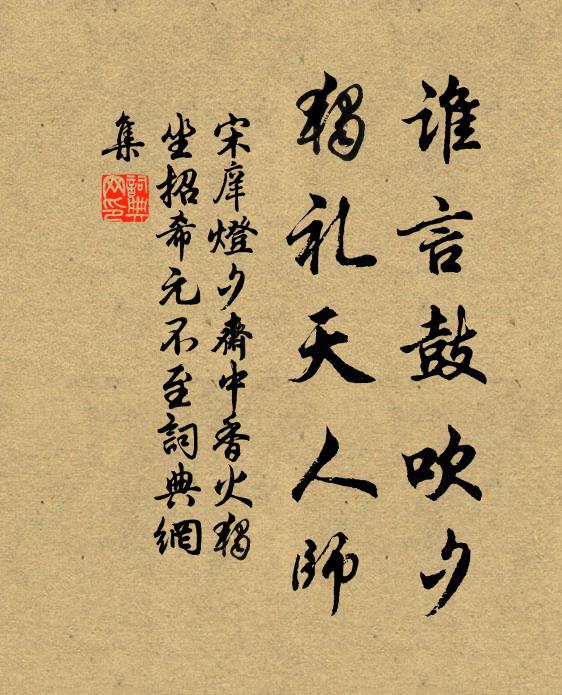 谁言鼓吹夕
獨礼天人師
宋庠燈夕齋中香火獨
坐招希元不至詞典網
集
詞典
网印